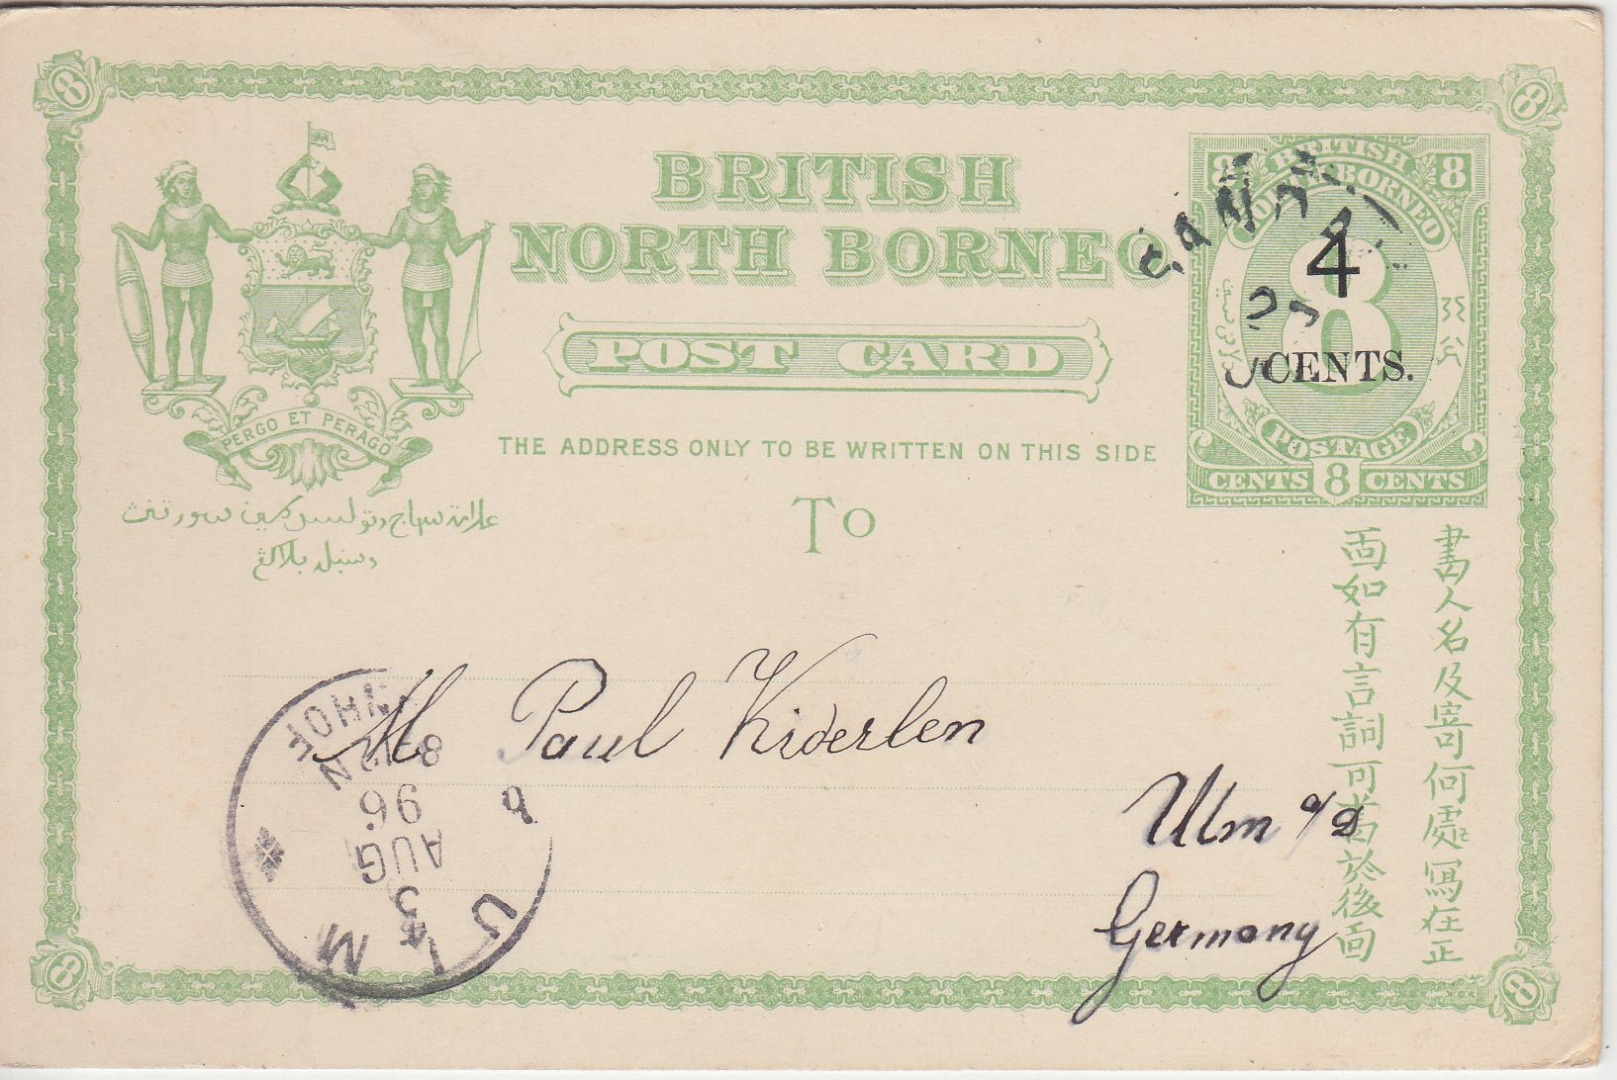 8 8
BRITISH
NORTH BORNEO
POST CARD
THE ADDRESS ONLY TO BE WRITTEN ON THIS SIDE
To
PERGO ET PERAGO
8 8
BRITISH
NORTH BORNEO
8
4
CENTS.
POSTAGE
CENTS 8 CENTS
書人名及寄何處寫在正
面如有言詞可書於後面
M Paul Kiderlen
Ulm a/D
Germany
SANDA
ULM
5
AUG
96
8-9N
JOHN
HOF
8 8